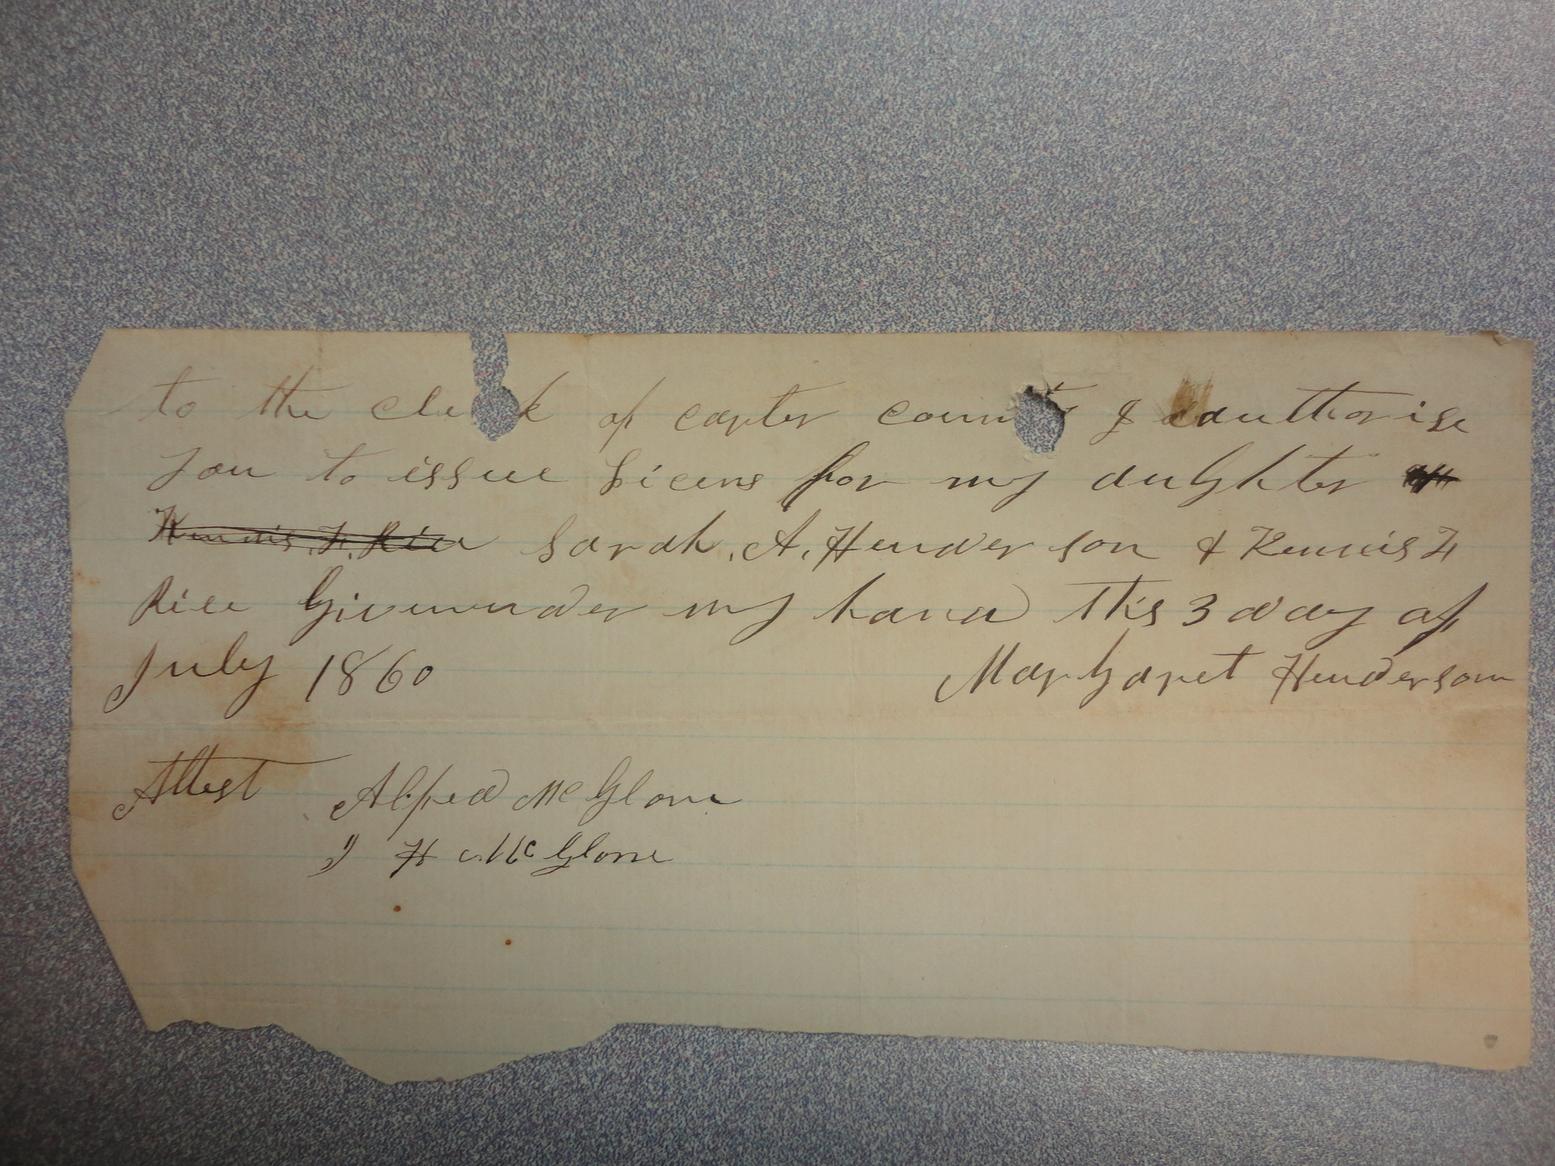 to the clek of carter count I authorise
you to issue Licens for my dughter
Kennis. H. Rice Sarah. A. Henderson & Kennis H
Rice Givenunder my hand this 3 day of
July 1860 Margaret Henderson
Attest Alfred McGlone
J H McGlone